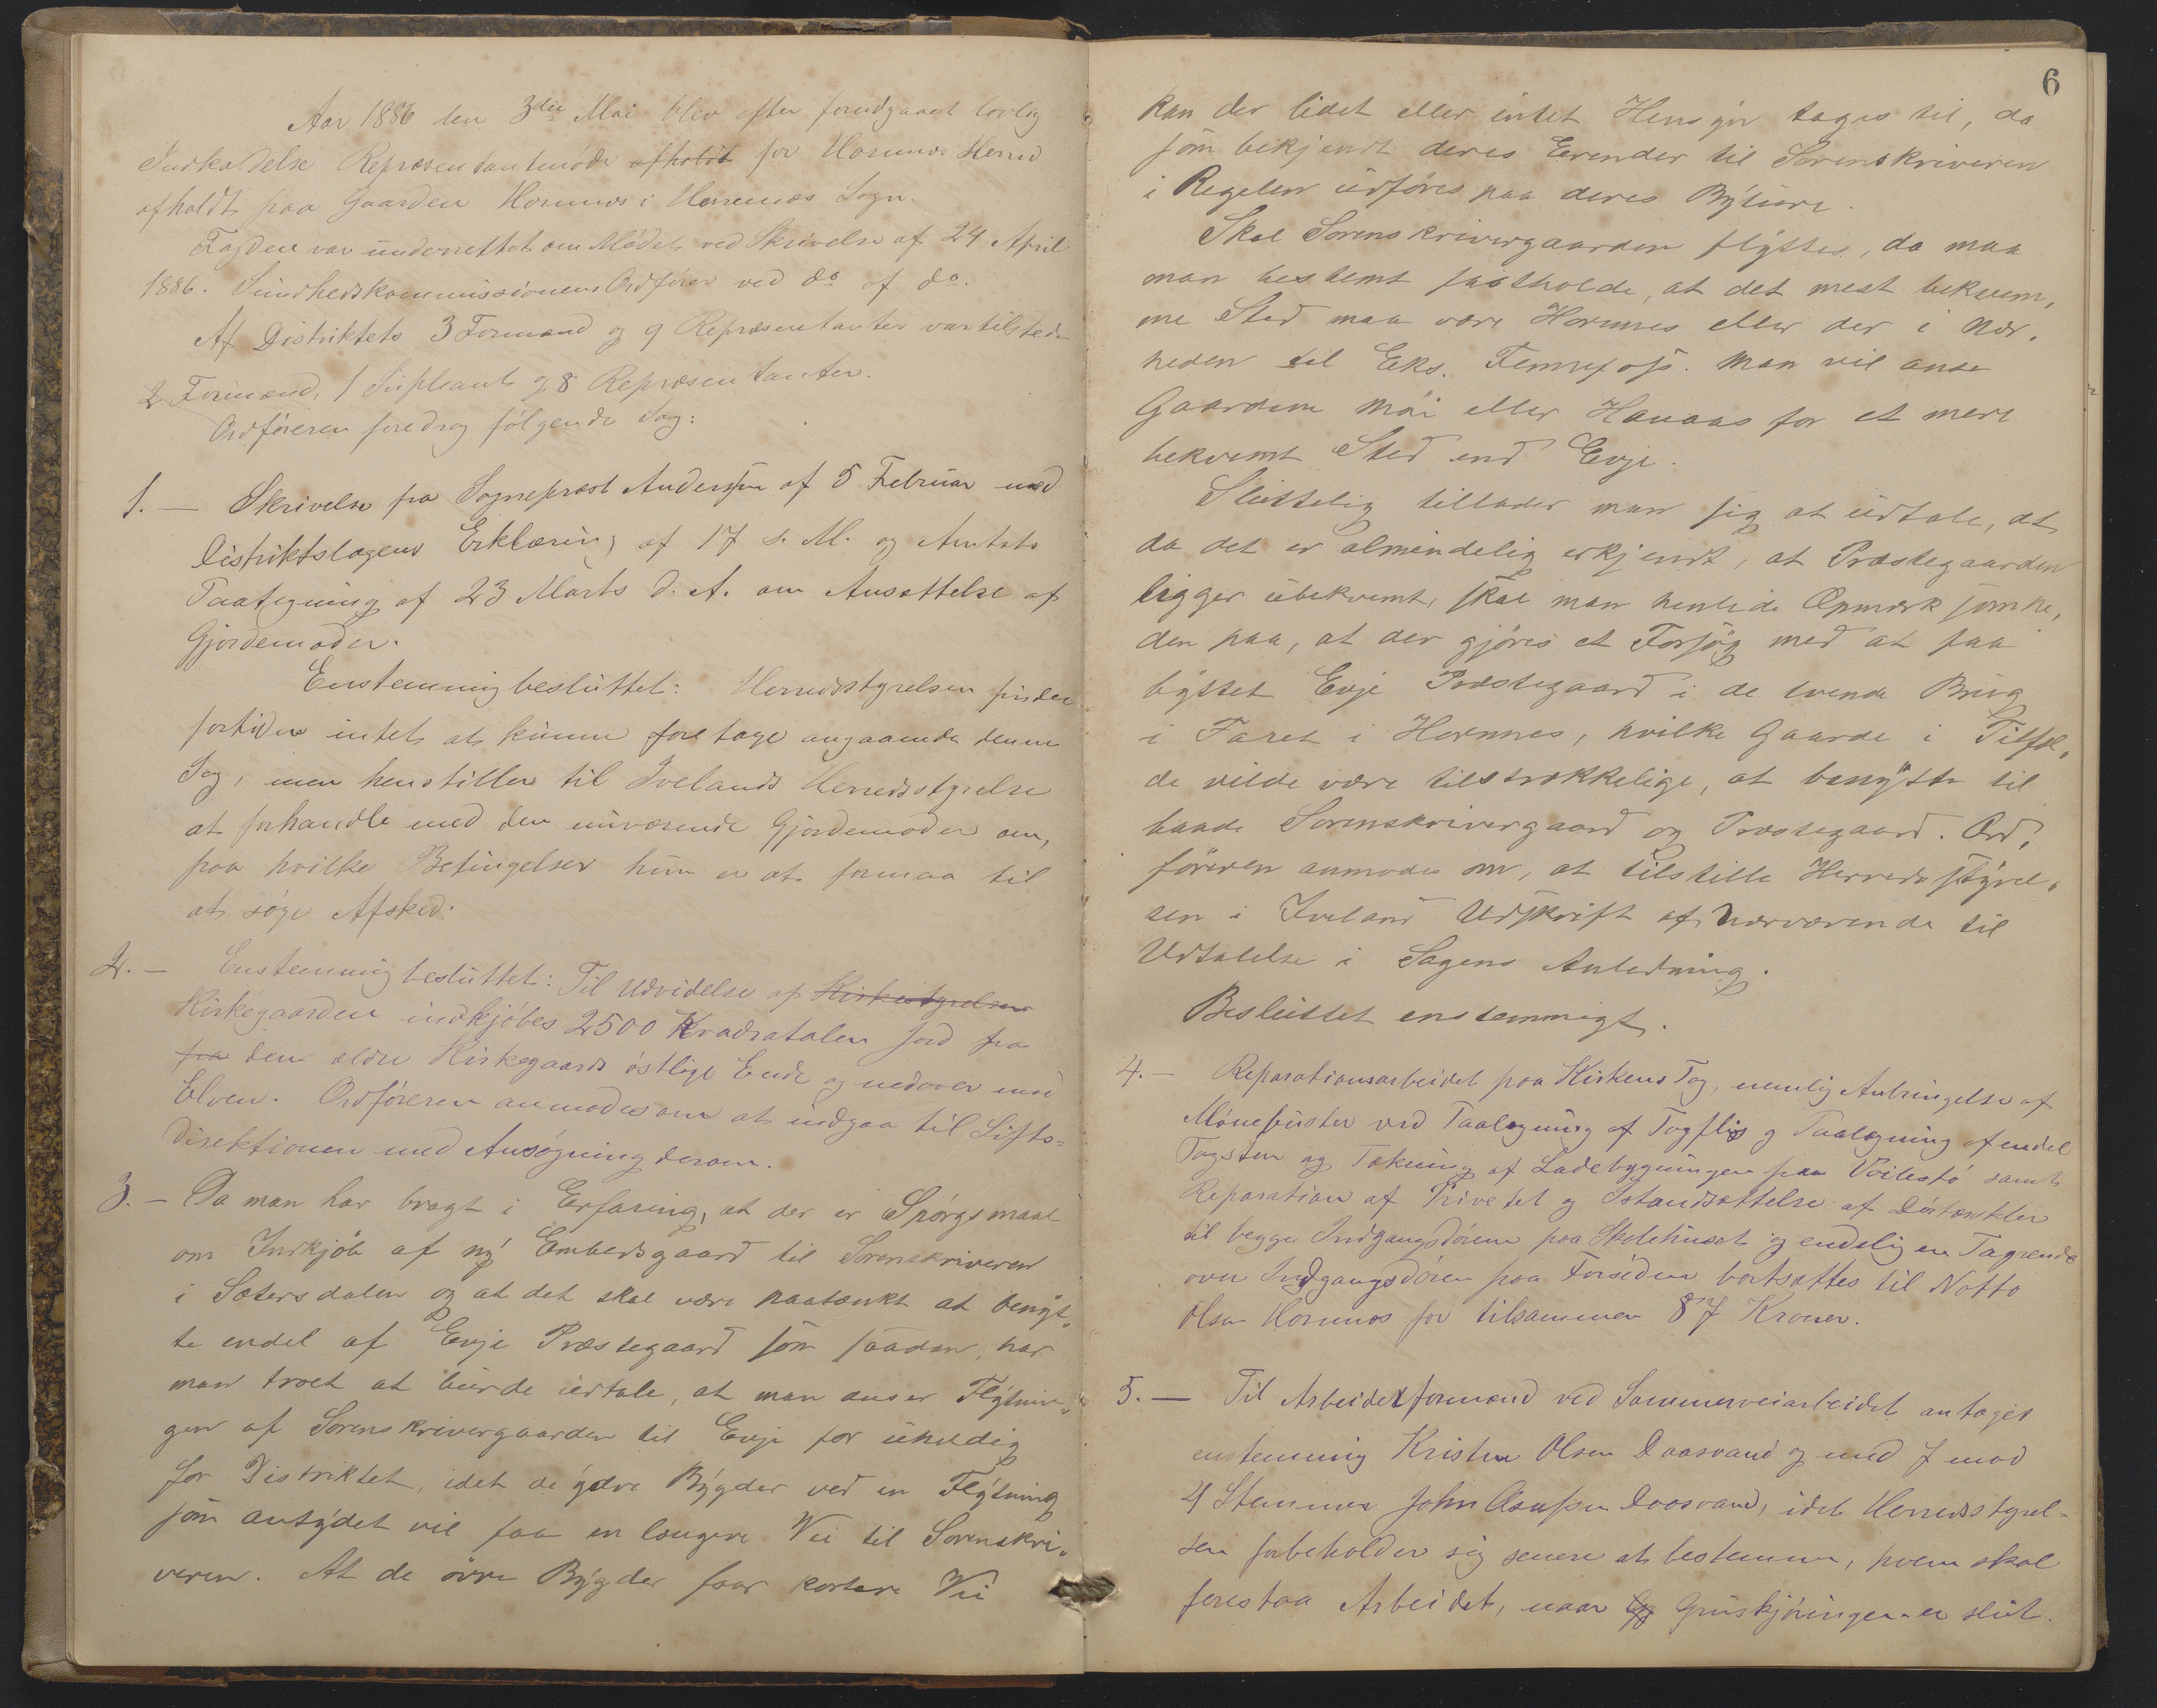 Aar 1886 den 3die Mai blev efter forudgaaet lovlig
Indkaldelse Repræsentantmøde afholdt for Hornnes Herred
afholdt paa Gaarden Hornnes i Hornnes Sogn.
Fogden var underrettet om Mødet ved Skrivelse af 24 April
1886. Sundhedskommissionens Ordfører ved do af do.
Af Distriktets 3 Formænd og 9 Repræsentanter var tilstede
2 Formænd, 1 Supleant og 8 Repræsentanter.
Ordføreren foredrog følgende Sag:
1. — Skrivelse fra Sogneprest Anderssen af 5 Februar med
Distriktslægens Erklæring af 17 s. M. og Amtets
Paategning af 23 Marts d. A. om Ansættelse af
Gjordemoder.
Enstemmig besluttet: Herredsstyrelsen finder
fortiden intet at kunne foretage angaaende denne
Sag, men henstiller til Ivelands Herredsstyrelse
at forhandle med den nuværende Gjordemoder om,
paa hvilke Betingelser hun er at formaa til
at søge Afsked.
2. — Enstemmig besluttet: Til Udvidelse af Kirkestyrelsen
Kirkegaarden indkjøbes 2500 Kvadratalen Jord fra
fra den ældre Kirkegaards østlige Ende og nedover mod
Elven. Ordføreren anmodes om at indgaa til Stifts=
direktionen med Ansøgning derom.
3. — Da man har bragt i Erfaring, at der er Spørgsmaal
om Indkjøb af ny Embedsgaard til Sorenskriveren
i Sætersdalen og at det skal være paatænkt at benyt„
te endel af Evje Præstegaard som saadan, har
man troet at burde udtale, at man anser Flytnin„
gen af Sorenskrivergaarden til Evje for uheldig
for Distriktet, idet de ydre Bygder ved en Flytning
som antydet vil faa en længere Vei til Sorenskri„
veren. At de øvre Bygder faar kortere Vei
6
kan der lidet eller intet Hensyn tages til, da
som bekjendt deres Erender til Sorenskriveren
i Regelen udføres paa deres Byture.
Skal Sorenskrivergaarden flyttes, da maa
man bestemt fastholde, at det mest bekvem„
me Sted maa være Hornnes eller der i Nær„
heden til Eks. Fennefoss. Man vil anse
Gaardene Moi eller Hanaas for et mere
bekvemt Sted end Evje.
Sluttelig tillader man sig at udtale, at
da det er almindelig erkjendt, at Præstegaarden
ligger ubekvemt, skal man henlede Opmærksomhe„
den paa, at der gjøres et Forsøg med at faa
byttet Evje Præstegaard i de tvende Brug
i Faret i Hornnes, hvilke Gaarde i Tilfæl„
de vilde være tilstrækkelige, at benytte til
baade Sorenskrivergaard og Præstegaard. Ord„
føreren anmodes om, at tilstille Herredsstyrel„
sen i Iveland Udskrift af Nærværende til
Udtalelse i Sagens Anledning.
Besluttet enstemmigt.
4. — Reparationsarbeidet paa Kirkens Tag, nemlig Anbringelse af
Mønepuster ved Paalægning af Tagflis og Paalægning af endel
Tagsten og Tækning af Ladebygningen paa Veilestø samt
Reparation af Privetet og Istandsættelse af Dørtærskler
til begge Indgangsdørene paa Skolehuset og endelig en Tagrende
over Indgangsdøren paa Forsiden bortsættes til Notto
Olsen Hornnes for tilsammen 87 Kroner.
5. — Til Arbeidsformænd ved Sommerveiarbeidet antages
enstemmig Kristen Olsen Daasvand og med 7 mod
4 Stemmer John Aanesen Daasvand, idet Herredsstyrel=
sen forbeholder sig senere at bestemme, hvem skal
forestaa Arbeidet, naar Gruskjøringen er slut.